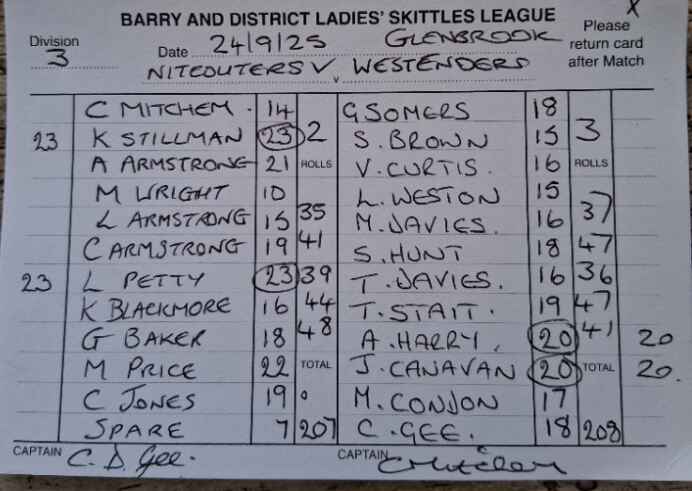 X
BARRY AND DISTRICT LADIES' SKITTLES LEAGUE
Division 3
Date 24/9/25 GLENBROOK
Please return card after Match
NITEOUTERS V WESTENDERS
v
C MITCHEM 14 G SOMERS 18
23 K STILLMAN 23 2 S. BROWN 15 3
A ARMSTRONG 21 ROLLS V. CURTIS. 16 ROLLS
M WRIGHT 10 L. WESTON 15
L ARMSTRONG 15 35 M. DAVIES. 16 37
C ARMSTRONG 19 41 S. HUNT 18 47
23 L PETTY 23 39 T. DAVIES. 16 36
K BLACKMORE 16 44 T. STAIT. 19 47
G BAKER 18 48 A. HARRY, 20 41 20
M PRICE 22 TOTAL J. CANAVAN 20 TOTAL 20.
C JONES 19 M. CONDON 17
SPARE 7 207 C. GEE. 18 208
CAPTAIN C. D. Gee. CAPTAIN